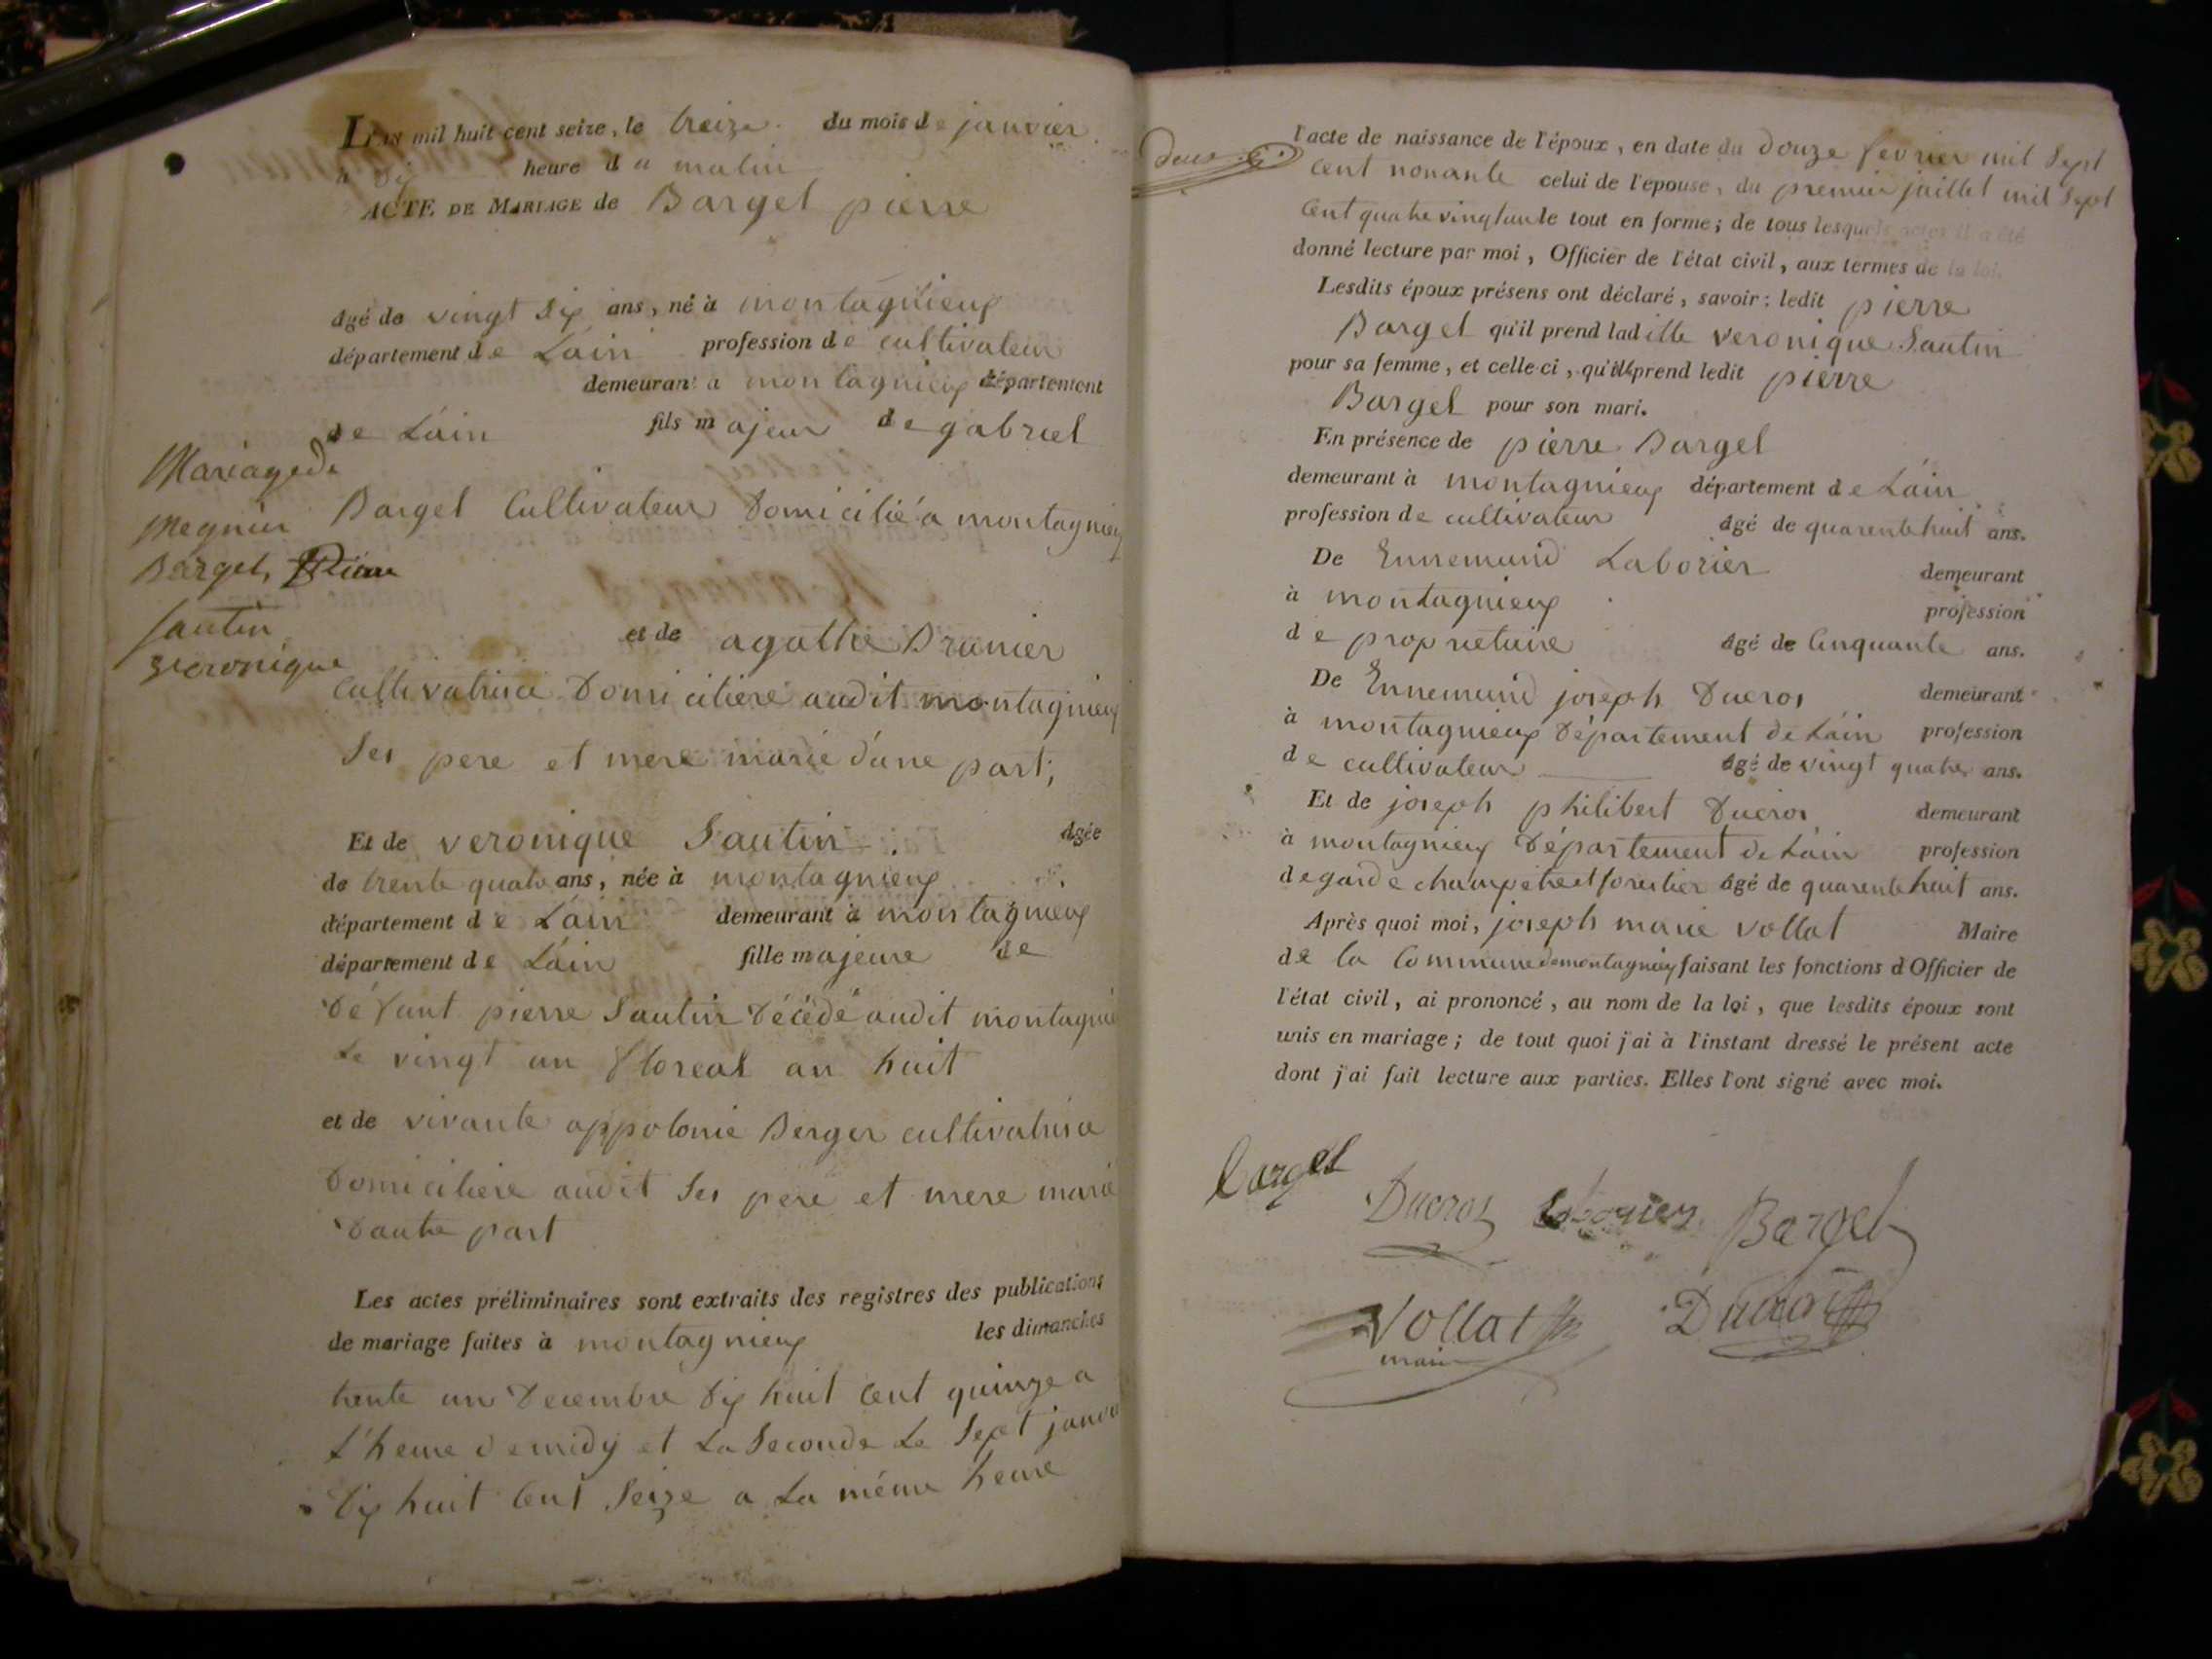 L'an mil huit cent seize, le treize du mois de janvier
a dix heure du matin
ACTE DE MARIAGE de Bargel pierre
âgé de vingt six ans, né à montagnieux
département de Lain profession de cultivateur
demeurant a montagnieux département
de Lain fils majeur de gabriel
Bargel Cultivateur domicilié a montagnieux
et de agathe Brunier
Cultivatrice domiciliere audit montagnieux
ses pere et mere marié d'une part;
Et de veronique Sautin âgée
de trente quatre ans, née à montagnieux
département de Lain demeurant à montagnieux
département de Lain fille majeure de
défunt pierre Sautin décédé audit montagnieu
Le vingt un floreal an huit
et de vivante appolonie Berger cultivatrice
domiciliere audit ses pere et mere marié
dautre part
Les actes préliminaires sont extraits des registres des publications
de mariage faites à montagnieux les dimanches
trente un decembre dix huit cent quinze a
L'heure de midy et La Seconde Le Sept janvi
dix huit cent Seize a La méme heure
Mariage de
Bargel, Pierre
Sautin
veronique
deux
l'acte de naissance de l'époux, en date du douze fevrier mil sept
cent nonante celui de l'epouse, du premier juillet mil sept
cent quatre vingt un le tout en forme; de tous lesquels actes il a été
donné lecture par moi, Officier de l'état civil, aux termes de la loi.
Lesdits époux présens ont déclaré, savoir: ledit pierre
Bargel qu'il prend laditte veronique Sautin
pour sa femme, et celle-ci, qu'elle prend ledit pierre
Bargel pour son mari.
En présence de pierre Bargel
demeurant à montagnieux département de Lain
profession de cultivateur âgé de quarente huit ans.
De Ennemund Laborier demeurant
à montagnieux profession
de proprietaire âgé de Cinquante ans.
De Ennemund joseph Ducros demeurant
à montagnieux département de Lain profession
de cultivateur âgé de vingt quatre ans.
Et de joseph philibert Ducros demeurant
à montagnieux département de Lain profession
de garde champetre et forestier âgé de quarente huit ans.
Après quoi moi, joseph marie vollat Maire
de la Commune de montagnieux faisant les fonctions d'Officier de
l'état civil, ai prononcé, au nom de la loi, que lesdits époux sont
unis en mariage; de tout quoi j'ai à l'instant dressé le présent acte
dont j'ai fait lecture aux parties. Elles l'ont signé avec moi.
bargel
Ducros Laborier Bargel
Vollat Ducros
maire